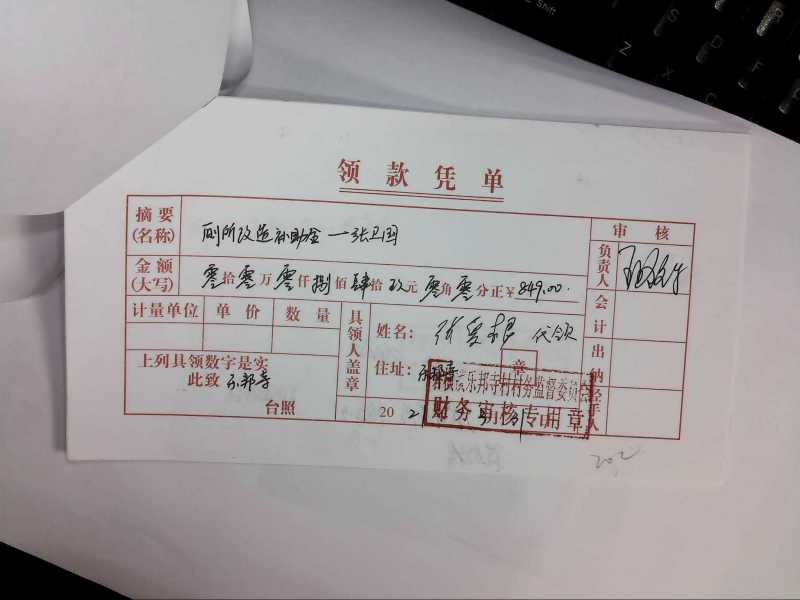 领款凭单
摘要
(名称)
厕所改造补助金一张卫国
审核
负责人
金额
(大写)
零拾零万零仟捌佰肆拾玖元零角零分正¥849.00.
计量单位 单价 数量
具领人盖章
姓名: 张爱根 代领
会计
上列具领数字是实
此致
台照
住址:
章
出纳
经手人
乐邦寺村村务监督委员会
财务审核专用章
20
202